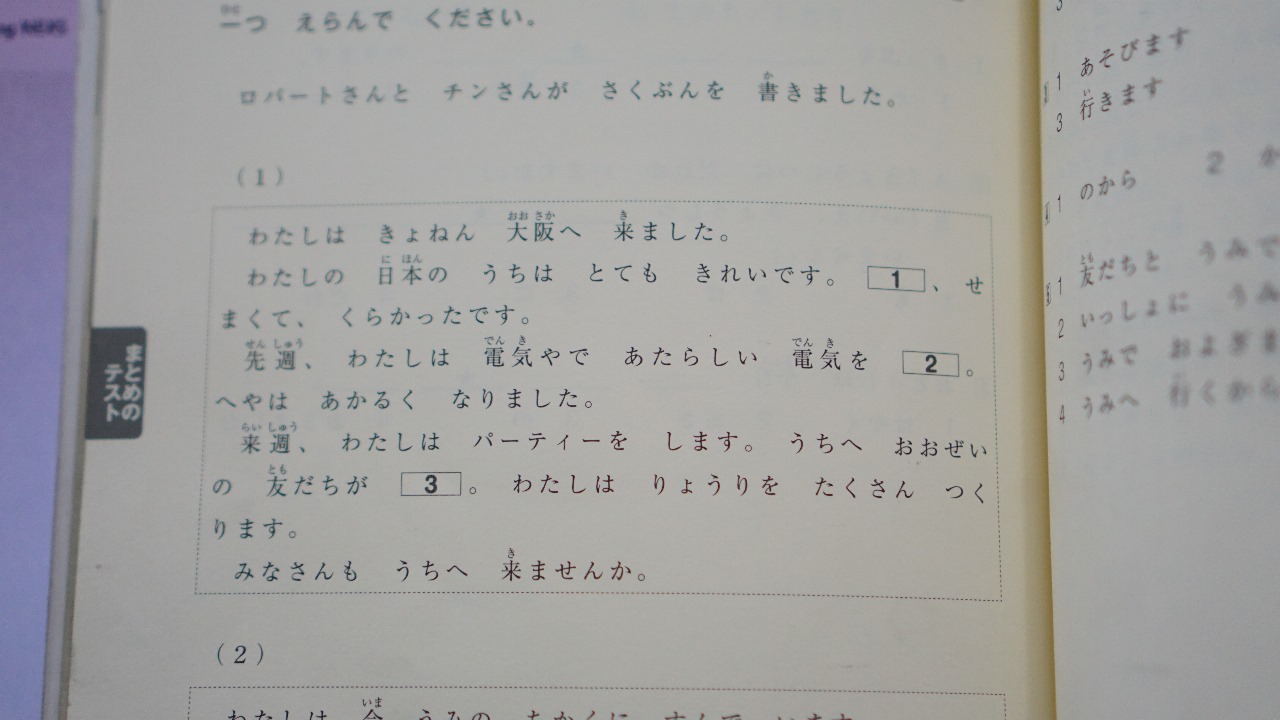 一つ えらんで ください。
ロバートさんと チンさんが さくぶんを 書きました。
(1)
わたしは きょねん 大阪へ 来ました。
わたしの 日本の うちは とても きれいです。 1 、せ
まくて、 くらかったです。
先週、 わたしは 電気やで あたらしい 電気を 2 。
へやは あかるく なりました。
来週、 わたしは パーティーを します。 うちへ おおぜい
の 友だちが 3 。 わたしは りょうりを たくさん つく
ります。
みなさんも うちへ 来ませんか。
(2)
わたしは 今 うみの ちかくに すんで います
まとめの
テスト
1 あそびます
3 行きます
1 のから 2 か
1 友だちと うみで
2 いっしょに うみ
3 うみで およぎま
4 うみへ 行くから